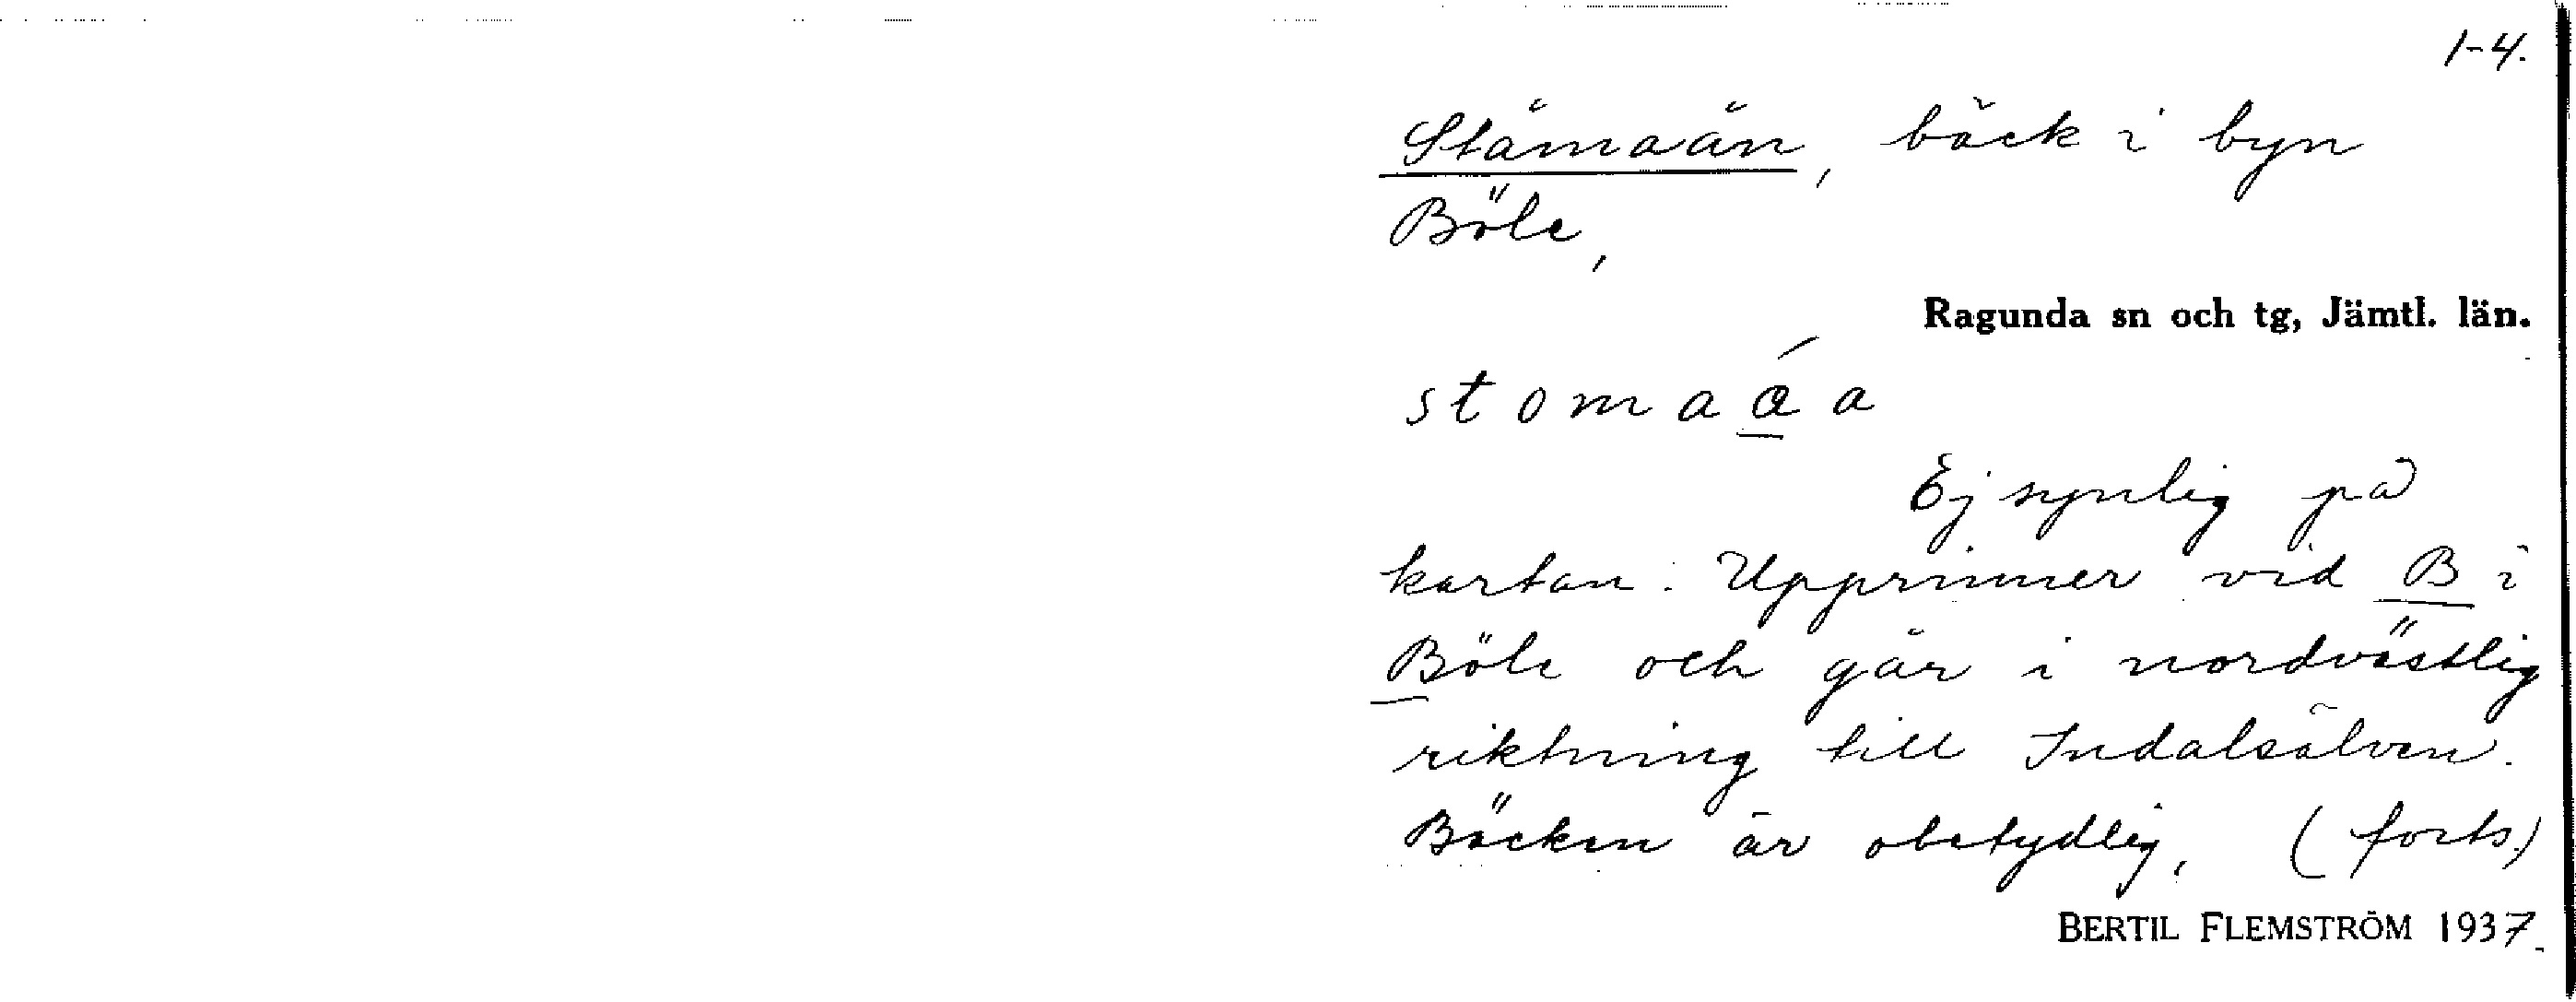 1-4.
Ståmaån, bäck i byn
Böle,
Ragunda sn och tg, Jämtl. län.
stomaáa
Ej synlig på
kartan. Upprinner vid B i
Böle och går i nordvästlig
riktning till Indalsälven.
Bäcken är obetydlig. (forts.)
BERTIL FLEMSTRÖM 1937.